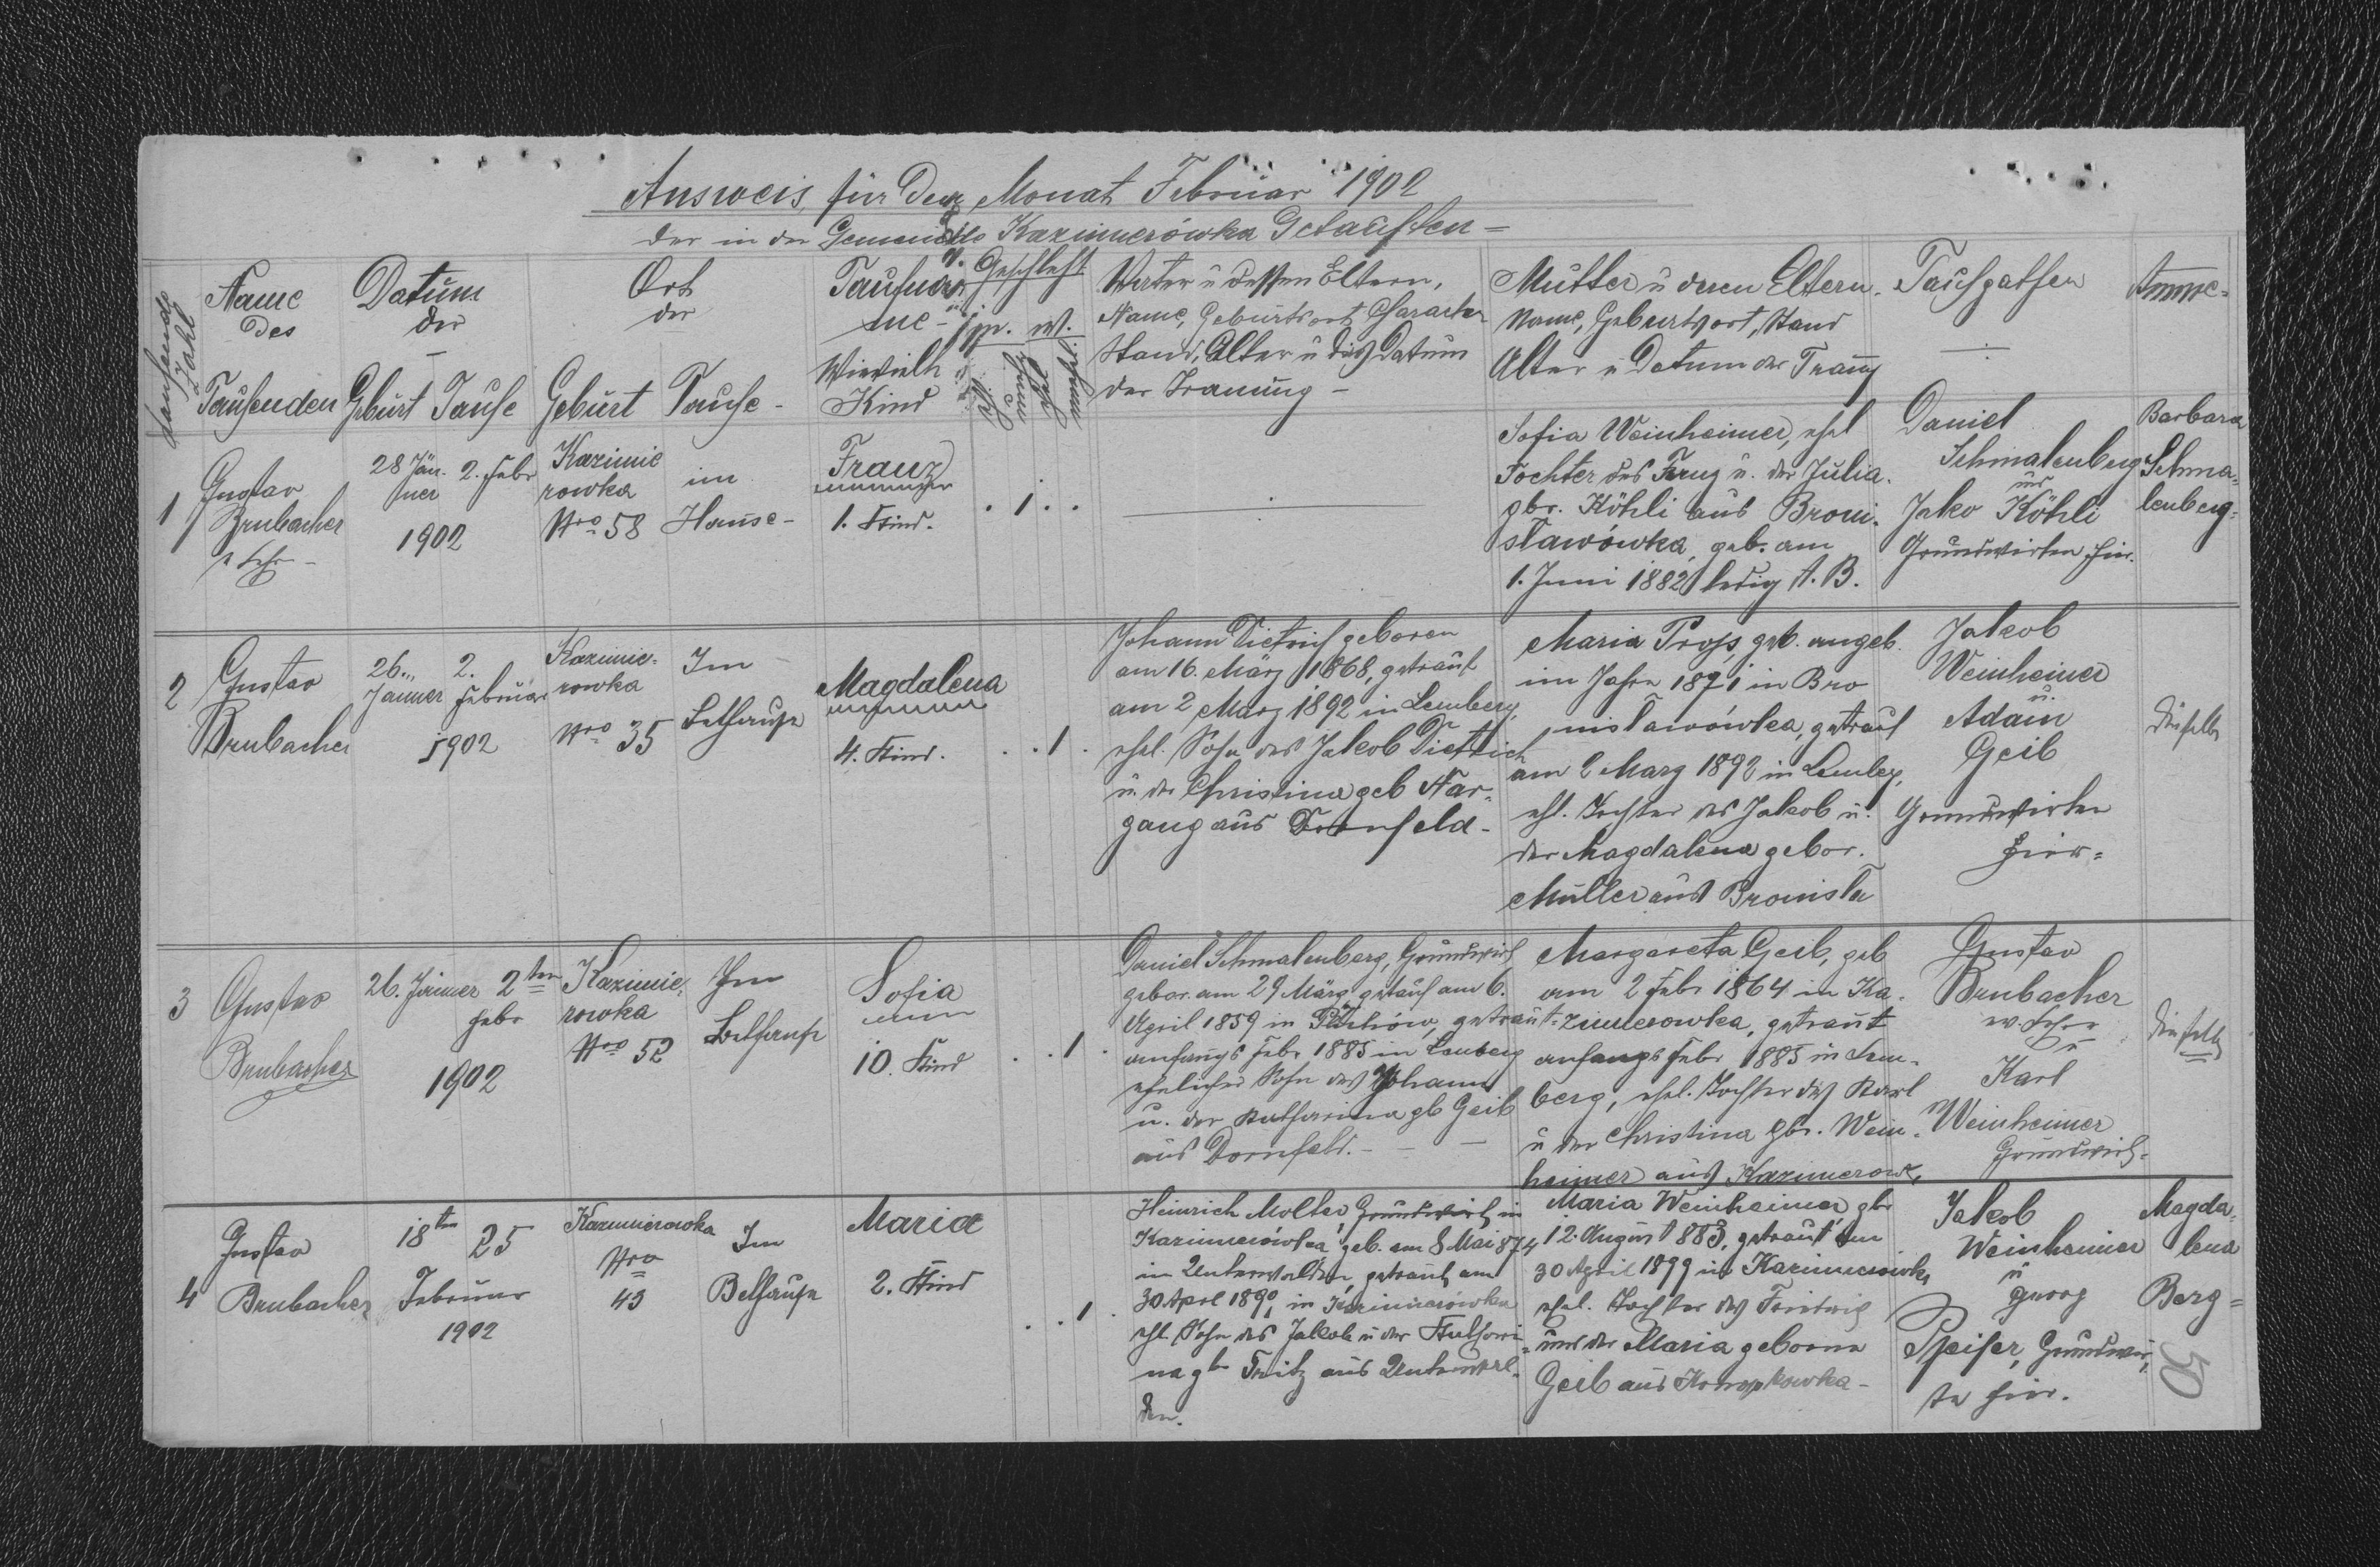 Ausweis für den Monat Februar 1902
der in der Gemeinde Kazimierówka Getauften =
laufende Zahl
Name
des
Taufenden
Datum
der
Geburt Taufe
Ort
der
Geburt Taufe -
Taufna
me -
Wievielt
Kind
Geschlecht
m. w.
Vater u dessen Eltern,
Name, Geburtsort, Charakter
Stand, Alter u das Datum
der Trauung -
Mutter u deren Eltern.
Name, Geburtsort, Stand
Alter u Datum der Trauung
Taufpathen
Amme -
1
Gustav
Brubacher
28 Jän.
ner
2. Febr
1902
Kazimie
rowka
Nro 58
im
Hause -
Franz
1. Kind.
. 1 . .
Sofia Weinheimer, ehel
Tochter des Franz u. der Julia
gbr. Köhli aus Broni-
sławówka, geb. am
1. Juni 1882 ledig A. B.
Daniel
Schmalenberg
und
Jako Köhli
Grundwirten hier.
Barbara
Schma-
lenberg =
2
Gustav
Brubacher
26.
Jänner
2.
Februar
1902
Kazimie-
rowka
Nro 35
Im
Bethause
Magdalena
4. Kind.
. . 1 .
Johann Dietrich geboren
am 16. März 1868, getraut
am 2 März 1892 in Lemberg,
ehel. Sohn des Jakob Dietrich
u. der Christina geb Nar-
gang aus Dornfeld -
Maria Props, geb. angeb.
im Jahre 1871 in Bro
nisławówka, getraut
am 2 März 1892 in Lemberg,
ehl. Tochter des Jakob u.
der Magdalena gebor.
Müller aus Bronisła
Jakob
Weinheimer
u.
Adam
Geib
Grundwirten
hier =
dieselbe
3
Gustav
Brubacher
26. Jänner
2ten
Febr
1902
Kazimie-
rowka
Nro 52
Im
Bethause
Sofia
10. Kind
. . 1 .
Daniel Schmalenberg, Grundwirt
gebor. am 29 März getauft am 6.
April 1859 in, getraut
anfangs Febr 1885 in Lemberg
ehelicher Sohn des Johann
u. der Katharina gb Geib
aus Dornfeld. -
Margareta Geib, geb
am 2 Febr 1864 in Ka-
zimierowka, getraut
anfangs Febr 1885 in Lem-
berg, ehel. Tochter des Karl
u der Christina gbr. Wein-
heimer aus Kazimierow
Gustav
Brubacher
u
Karl
Weinheimer
Grundwirth -
dieselbe
4
Gustav
Brubacher
18ten
25
Februar
1902
Kazimierowka
Nro
43
Im
Bethause
Maria
2. Kind
. . 1 .
Heinrich Molter, Grundwirth in
Kazimierówka, geb. am 8 Mai 874
in Unterwalden, getraut am
30 April 189, in Kazimierówka
ehl Sohn des Jakob u der Kathari-
na gb Fritz aus Unterwal-
den.
Maria Weinheimer gbr
12. August 883, getraut am
30 April 1899 in Kazimierówka
ehel. Tochter des
und der Maria geborne
Geib aus Konopkowka -
Jakob
Weinheimer
u
Georg
Speiser, Grundwir-
te hier.
Magda-
lena
Berg =
50